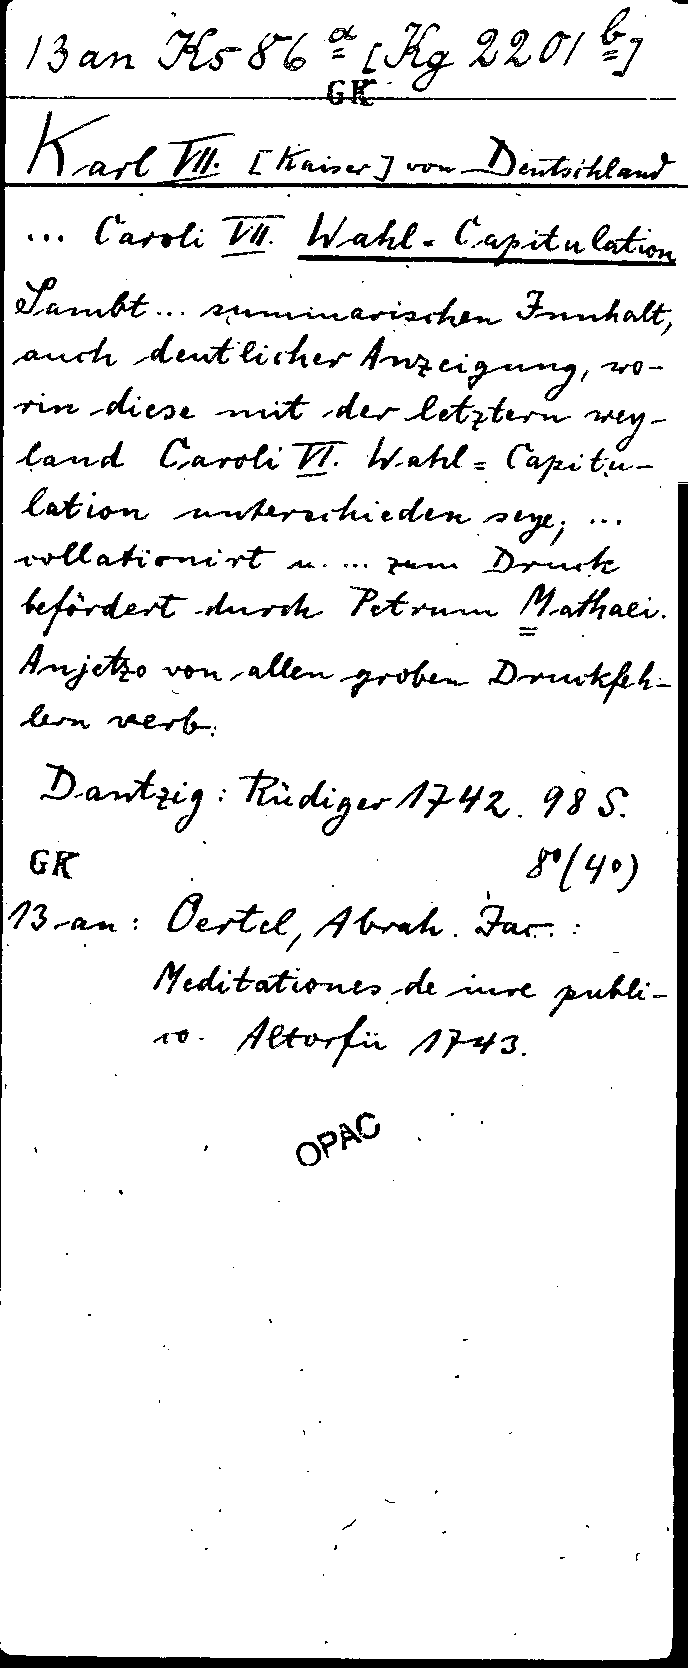 13 an Ks 86 a [Kg 2201 b]
GK
Karl VII. [Kaiser] von Deutschland
... Caroli VII. Wahl=Capitulation
Sambt ... summarischen Innhalt,
auch deutlicher Anzeigung, wo-
rin diese mit der letztern wey-
land Caroli VI. Wahl=Capitu-
lation unterschieden seye; ...
collationirt u. ... zum Druck
befördert durch Petrum Mathaei.
Anjetzo von allen groben Druckfeh-
lern verb.
Dantzig: Rüdiger 1742. 98 S.
GK 8°(4°)
13 an: Oertel, Abrah. Jac.:
Meditationes de iure publi-
co. Altorfii 1743.
OPAC